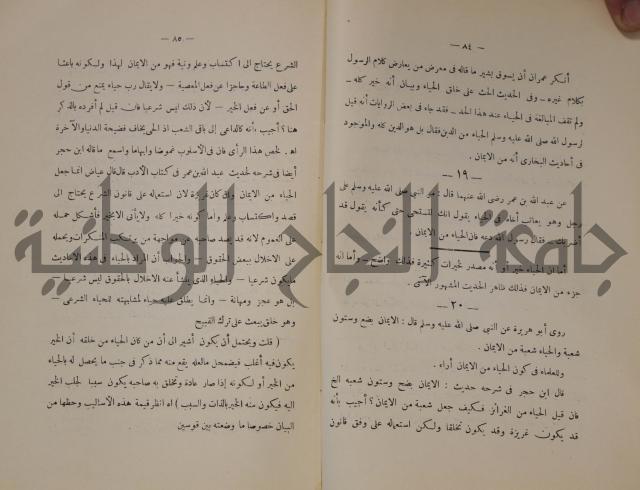 — ٨٤ —
أنكر عمران أن يسوق بشير ما قاله فى معرض من يعارض كلام الرسول
بكلام غيره — وفى الحديث الحث على خلق الحياء وبيان أنه خير كله —
ولم تقف المبالغة فى الحياء عند هذا الحد — فقد جاء فى بعض الروايات أنه قيل
لرسول الله صلى الله عليه وسلم الحياء من الدين فقال بل هو الدين كله والموجود
فى أحاديث البخارى أنه من الايمان .
— ١٩ —
عن عبد الله بن عمر رضى الله عنهما قال : مر النبى صلى الله عليه وسلم على
رجل وهو يعاتب أخاه فى الحياء يقول انك لتستحى حتى كأنه يقول قد
أضر بك — فقال رسول الله دعه فان الحياء من الايمان .
أما ان الحياء خير أو أنه مصدر لخيرات كثيرة فذلك واضح — وأما انه
جزء من الايمان فذلك ظاهر الحديث المشهور الآتى .
— ٢٠ —
روى أبو هريرة عن النبى صلى الله عليه وسلم قال : الايمان بضع وستون
شعبة والحياء شعبة من الايمان .
وللعلماء فى كون الحياء من الايمان أراء .
قال ابن حجر فى شرحه حديث : الايمان بضع وستون شعبه الخ
فان قيل الحياء من الغرائز فكيف جعل شعبة من الايمان ؟ أجيب بأنه
قد يكون غريزة وقد يكون تخلقا ولكن استعماله على وفق قانون
— ٨٥ —
الشرع يحتاج الى اكتساب وعلم ونية فهو من الايمان لهذا ولكونه باعثا
على فعل الطاعة وحاجزا عن فعل المعصية — ولا يقال رب حياء يمنع من قول
الحق أو عن فعل الخير — لأن ذلك ليس شرعيا فان قيل لم أفرده بالذكر
هنا ؟ أجيب بأنه كالداعى إلى باقى الشعب اذ الحى يخاف فضيحة الدنيا والآخرة
اه . نلخص هذا الرأى فان فى الأسلوب غموضا وابهاما واسمع ما قاله ابن حجر
أيضا فى شرحه لحديث عبد الله بن عمر فى كتاب الأدب قال قال عياض انما جعل
الحياء من الايمان وان كان غريزة لان استعماله على قانون الشرع يحتاج الى
قصد واكتساب وعلم وأما كونه خيرا كله ولا يأتى الا بخير فأشكل حمله
على العموم لانه قد يصد صاحبه عن مواجهة من يرتكب المنكرات ويحمله
على الاخلال ببعض الحقوق — والجواب أن المراد بالحياء فى هذه الاحاديث
ما يكون شرعيا — والحياء الذى ينشأ عنه الاخلال بالحقوق ليس شرعيا —
بل هو عجز ومهانة — وانما يطلق عليه حياء لمشابهته للحياء الشرعى —
وهو خلق يبعث على ترك القبيح
( قلت ويحتمل أن يكون أشير الى أن من كان الحياء من خلقه أن الخير
يكون فيه أغلب فيضمحل ما لعله يقع منه مما ذكر فى جنب ما يحصل له بالحياء
من الخير أو لكونه إذا صار عادة وتخلق به صاحبه يكون سببا لجلب الخير
اليه فيكون منه الخير بالذات والسبب ) اه انظر قيمة هذه الأساليب وحظها من
البيان خصوصا ما وضعته بين قوسين
جامعة النجاح الوطنية